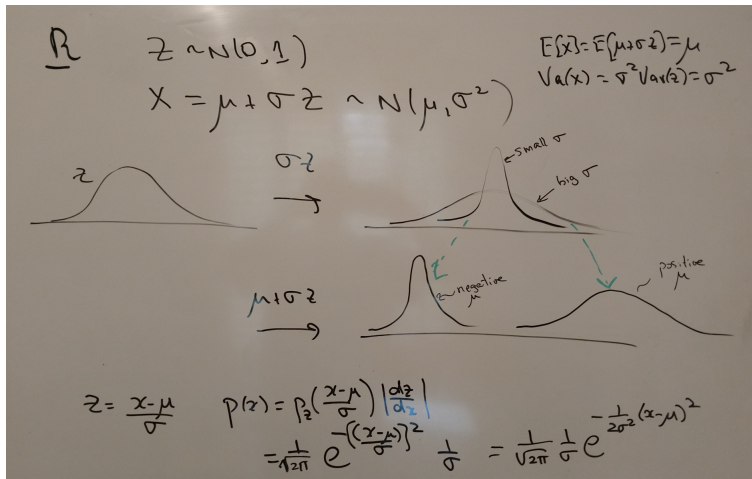 R
Z ~ N(0,1)
X = μ + σZ ~ N(μ, σ²)
E[x] = E[μ+σz] = μ
Var(x) = σ² Var(z) = σ²
z
σz
small σ
big σ
μ+σz
negative μ
positive μ
z = (x-μ)/σ p(x) = p_z((x-μ)/σ) |dz/dx|
= 1/√2π e^{-[(x-μ)/σ]²} 1/σ = 1/√2π 1/σ e^{-1/2σ² (x-μ)²}